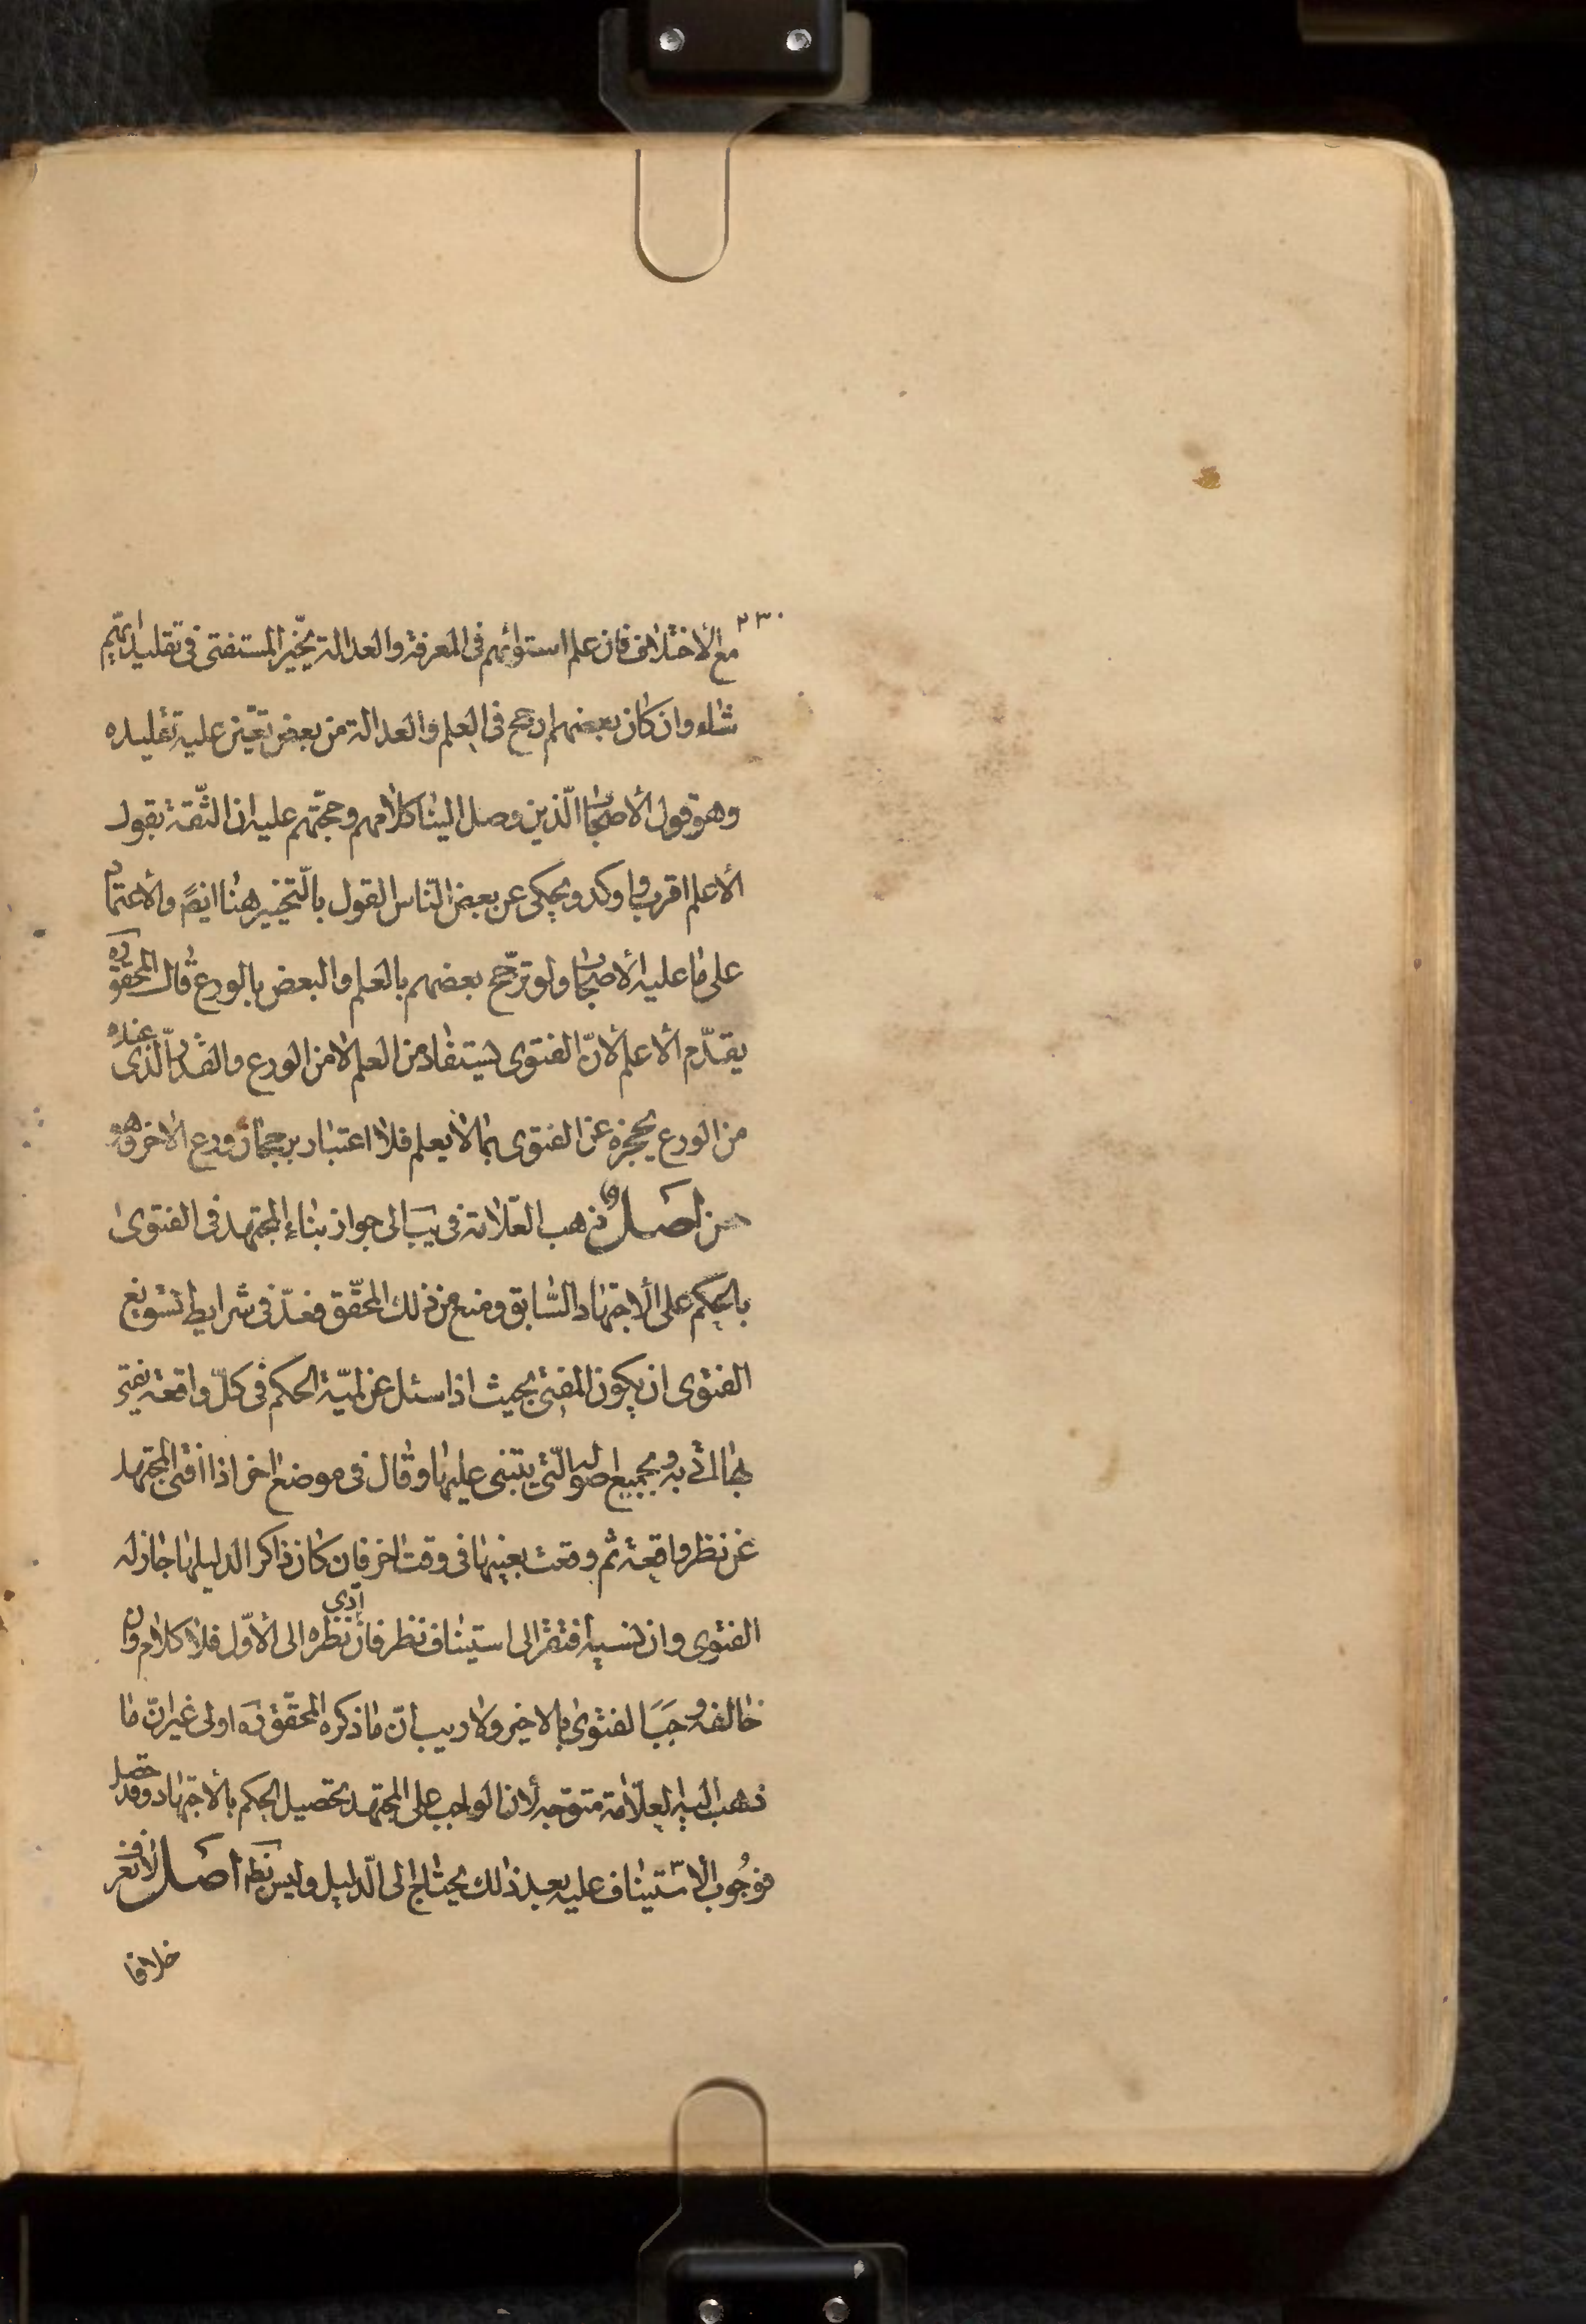 ٢٣٠
مع الاختلاف فان علم استوائهم فى المعرفة والعدالة يخيّر المستفتى فى تقليد ايّهم
شاء وان كان بعضهم ارجح فى العلم والعدالة من بعض تعيّن عليه تقليده
وهو قول الاصحاب الّذين وصل الينا كلامهم وحجّتهم عليه ان الثّقة بقول
الاعلم اقرب واوكد ويحكى عن بعض النّاس القول بالتّخيير هنا ايضً والاعتماد
على ما عليه الاصحاب ولو ترجّح بعضهم بالعلم والبعض بالورع قال المحقق ره
يقدّم الاعلم لانّ الفتوى يستفاد من العلم لا من الورع والقدر الّذى عنده
من الورع يحجزه عن الفتوى بما لا يعلم فلا اعتبار برجحان ورع الاخر وهو
حسن اصل ذهب العلّامة فى يب الى جواز بناء المجتهد فى الفتوى
بالحكم على الاجتهاد السّابق ومنع من ذلك المحقّق فعدّ فى شرايط تسويغ
الفتوى ان يكون المفتى بحيث اذا سئل عن لميّة الحكم فى كلّ واقعة يفتى
بها اتى به وبجميع اصوله الّتى يبتنى عليها وقال فى موضع اخر اذا افتى المجتهد
عن نظر واقعة ثم وقعت بعينها فى وقت اخر فان كان ذاكرا لدليلها جاز له
الفتوى وان نسيه افتقر الى استيناف نظر فان ادى نظره الى الاوّل فلا كلام وان
خالفه وجب الفتوى بالاخير ولا ريب انّ ما ذكره المحقّق ره اولى غير انّ ما
ذهب اليه العلّامة متوجّه لان الواجب على المجتهد تحصيل الحكم بالاجتهاد وقد حصل
فوجوب الاستيناف عليه بعد ذلك يحتاج الى الدّليل وليس بظ اصل لا نعرف
خلافا